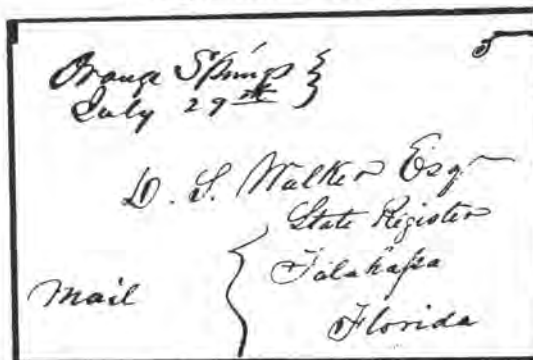 5
Orange Springs
July 29th
D. S. Walker Esqr
State Register
Talahassa
Mail
Florida